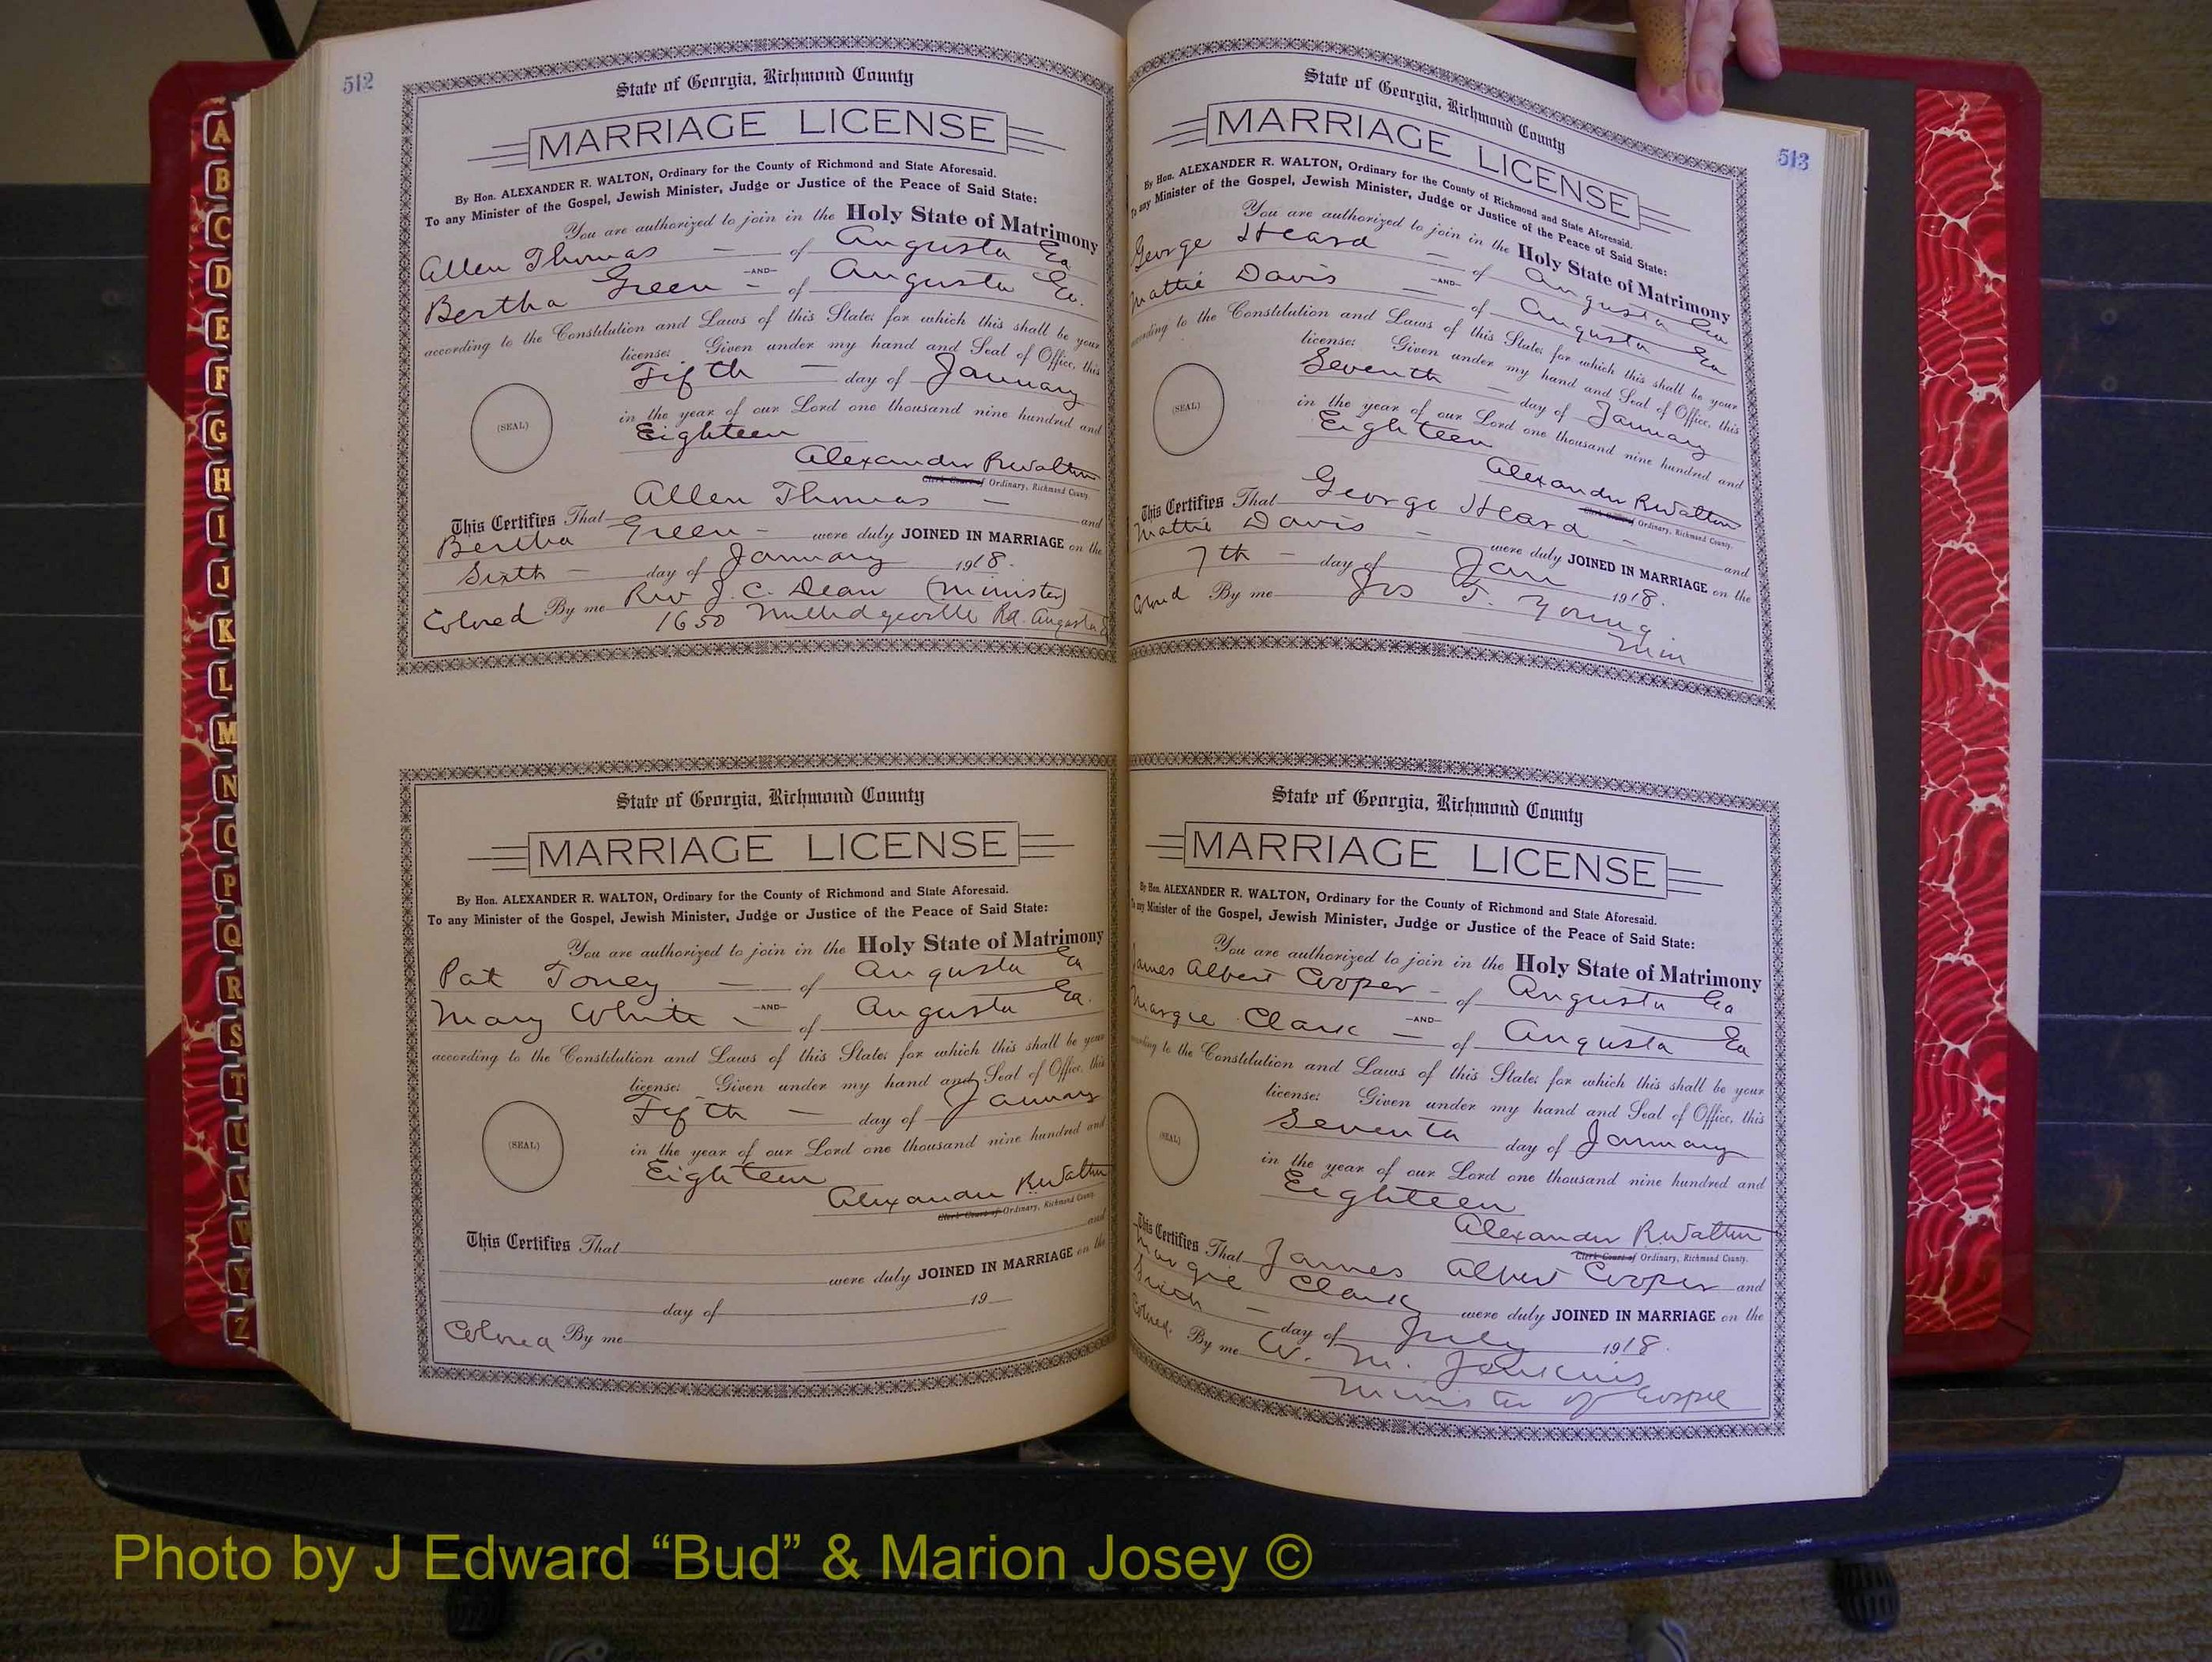 512
State of Georgia, Richmond County
MARRIAGE LICENSE
By Hon. ALEXANDER R. WALTON, Ordinary for the County of Richmond and State Aforesaid.
To any Minister of the Gospel, Jewish Minister, Judge or Justice of the Peace of Said State:
You are authorized to join in the Holy State of Matrimony
Allen Thomas — of Augusta Ga
—AND—
Bertha Green - of Augusta Ga.
according to the Constitution and Laws of this State; for which this shall be your
license: Given under my hand and Seal of Office, this
Fifth — day of January
in the year of our Lord one thousand nine hundred and
Eighteen
(SEAL)
Alexander R Walton
Clerk Court of Ordinary, Richmond County.
This Certifies That Allen Thomas — and
Bertha Green - were duly JOINED IN MARRIAGE on the
Sixth - day of January 1918.
Colored By me Rev J. C. Dean (Minister)
1650 Milledgeville Rd. Augusta
State of Georgia, Richmond County
MARRIAGE LICENSE
By Hon. ALEXANDER R. WALTON, Ordinary for the County of Richmond and State Aforesaid.
To any Minister of the Gospel, Jewish Minister, Judge or Justice of the Peace of Said State:
You are authorized to join in the Holy State of Matrimony
Pat Toney — of Augusta Ga
—AND—
Mary White - of Augusta Ga.
according to the Constitution and Laws of this State; for which this shall be your
license: Given under my hand and Seal of Office, this
Fifth — day of January
in the year of our Lord one thousand nine hundred and
Eighteen
(SEAL)
Alexander R. Walton
Clerk Court of Ordinary, Richmond County.
This Certifies That and
were duly JOINED IN MARRIAGE on the
day of 19
Colored By me
513
State of Georgia, Richmond County
MARRIAGE LICENSE
By Hon. ALEXANDER R. WALTON, Ordinary for the County of Richmond and State Aforesaid.
To any Minister of the Gospel, Jewish Minister, Judge or Justice of the Peace of Said State:
You are authorized to join in the Holy State of Matrimony
George Heard — of Augusta Ga
—AND—
Mattie Davis — of Augusta Ga
according to the Constitution and Laws of this State; for which this shall be your
license: Given under my hand and Seal of Office, this
Seventh — day of January
in the year of our Lord one thousand nine hundred and
Eighteen
(SEAL)
Alexander R Walton
Clerk Court of Ordinary, Richmond County.
This Certifies That George Heard - and
Mattie Davis - were duly JOINED IN MARRIAGE on the
7th - day of Jan 1918.
Colored By me Jos T. Young
Min
State of Georgia, Richmond County
MARRIAGE LICENSE
By Hon. ALEXANDER R. WALTON, Ordinary for the County of Richmond and State Aforesaid.
To any Minister of the Gospel, Jewish Minister, Judge or Justice of the Peace of Said State:
You are authorized to join in the Holy State of Matrimony
James Albert Cooper - of Augusta Ga
—AND—
Margie Clark — of Augusta Ga
according to the Constitution and Laws of this State; for which this shall be your
license: Given under my hand and Seal of Office, this
Seventh day of January
in the year of our Lord one thousand nine hundred and
Eighteen
(SEAL)
Alexander R. Walton
Clerk Court of Ordinary, Richmond County.
This Certifies That James Albert Cooper and
Margie Clark were duly JOINED IN MARRIAGE on the
day of July 1918.
Colored. By me W. M. Jenkins
Minister of Gospel
A
B
C
D
E
F
G
H
I
J
K
L
M
N
O
P
Q
R
S
T
U
V
W
Y
Z
Photo by J Edward “Bud” & Marion Josey ©